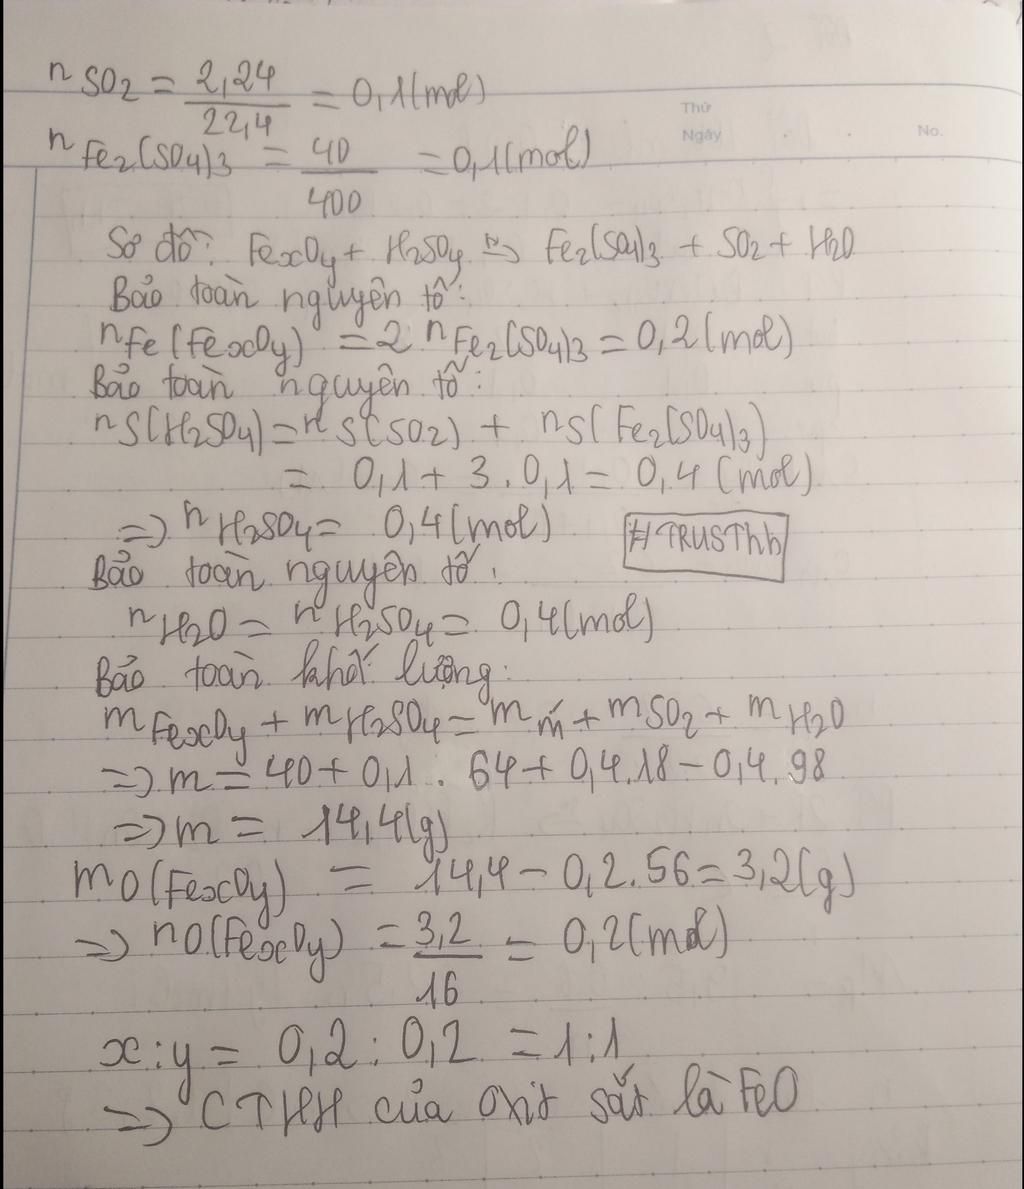 nSO2 = 2,24/22,4 = 0,1(mol)
Thứ
Ngày
No.
nFe2(SO4)3 = 40/400 = 0,1(mol)
Sơ đồ: FexOy + H2SO4 => Fe2(SO4)3 + SO2 + H2O
Bảo toàn nguyên tố:
nFe(FexOy) = 2 nFe2(SO4)3 = 0,2(mol)
Bảo toàn nguyên tố:
nS(H2SO4) = nS(SO2) + nS(Fe2(SO4)3)
= 0,1 + 3.0,1 = 0,4 (mol)
=> nH2SO4 = 0,4(mol)
#TRUSThh
Bảo toàn nguyên tố:
nH2O = nH2SO4 = 0,4(mol)
Bảo toàn khối lượng:
mFexOy + mH2SO4 = mm + mSO2 + mH2O
=> m = 40 + 0,1 . 64 + 0,4.18 - 0,4.98
=> m = 14,4(g)
mO(FexOy) = 14,4 - 0,2.56 = 3,2(g)
=> nO(FexOy) = 3,2/16 = 0,2(mol)
x:y = 0,2 : 0,2 = 1:1
=> CTHH của oxit sắt là FeO